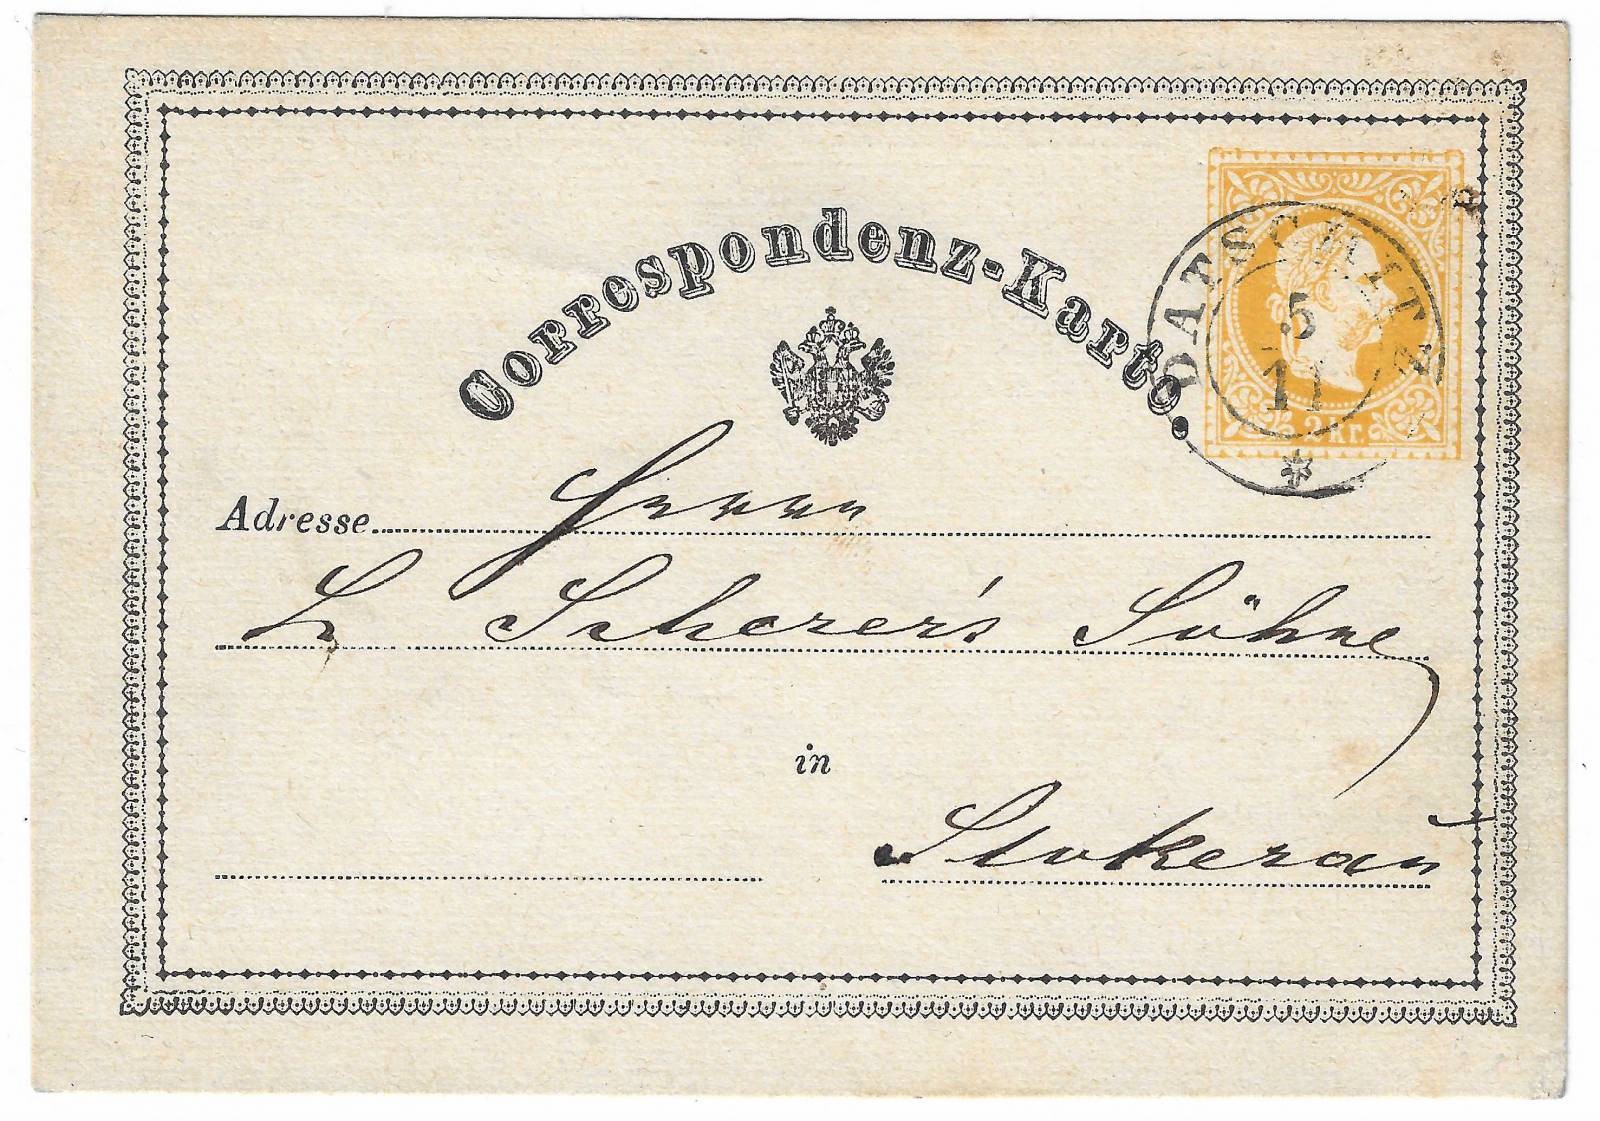 Correspondenz-Karte.
2 Kr.
DATSCHITZ
5
11
Adresse Herrn
L Scherer's Söhne
in
Stokerau